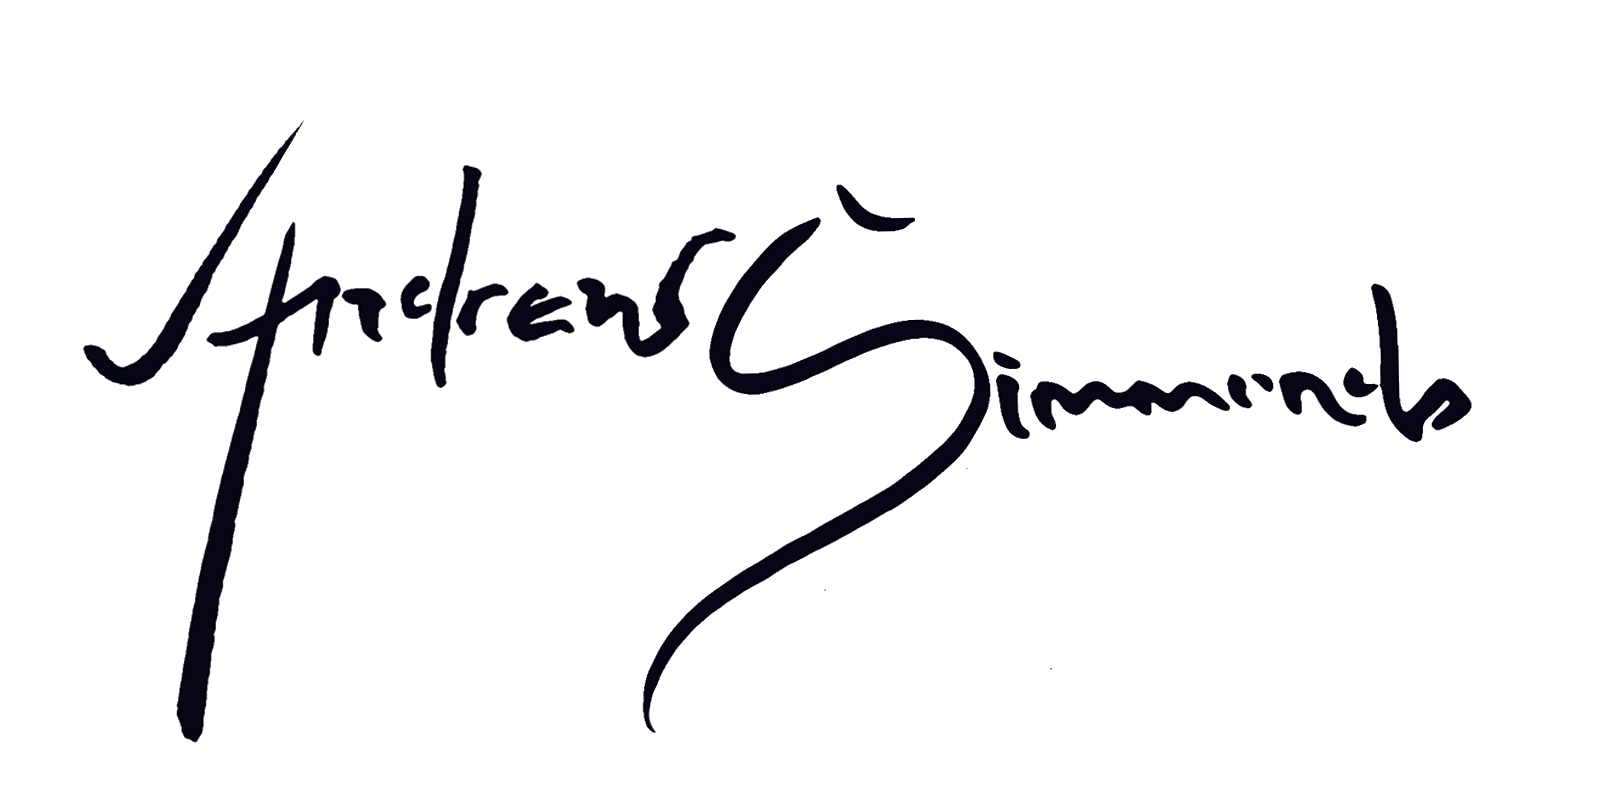 Andrew Simmonds